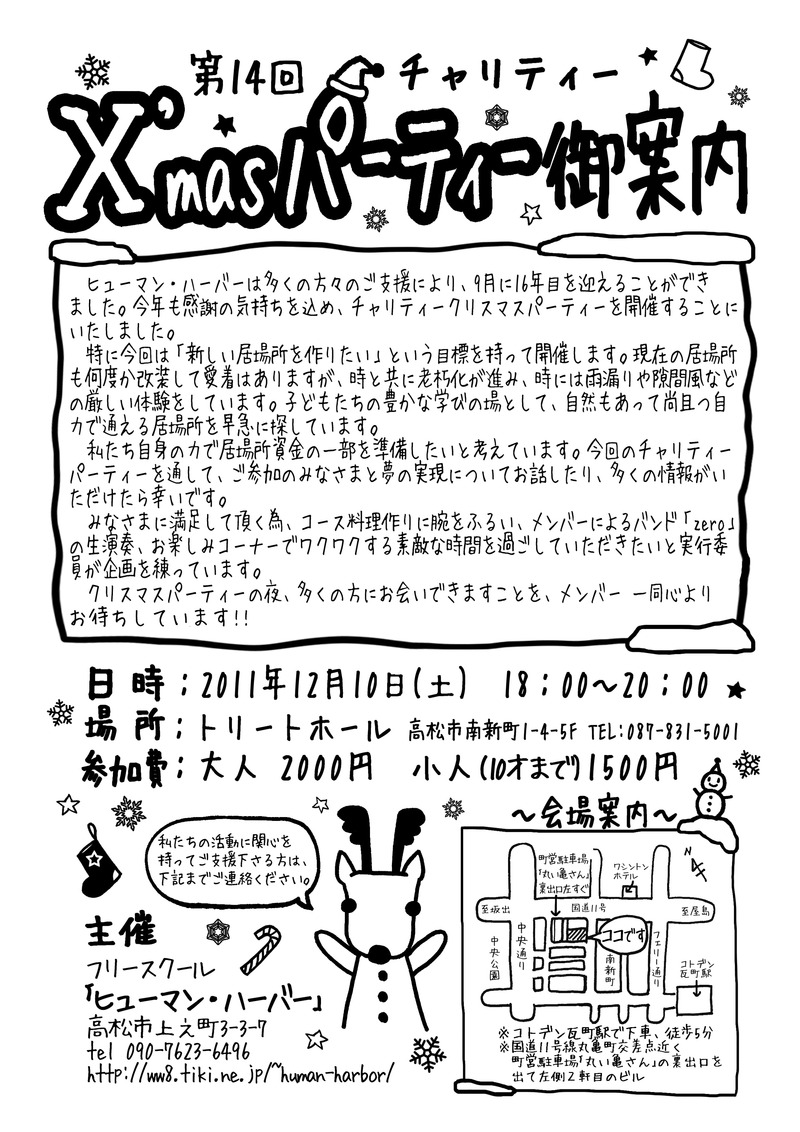 第14回 チャリティー
X'masパーティー御案内
ヒューマン・ハーバーは多くの方々のご支援により、9月に16年目を迎えることができ
ました。今年も感謝の気持ちを込め、チャリティークリスマスパーティーを開催することに
いたしました。
特に今回は「新しい居場所を作りたい」という目標を持って開催します。現在の居場所
も何度か改装して愛着はありますが、時と共に老朽化が進み、時には雨漏りや隙間風など
の厳しい体験をしています。子どもたちの豊かな学びの場として、自然もあって尚且つ自
力で通える居場所を早急に探しています。
私たち自身の力で居場所資金の一部を準備したいと考えています。今回のチャリティー
パーティーを通して、ご参加のみなさまと夢の実現についてお話したり、多くの情報がい
ただけたら幸いです。
みなさまに満足して頂く為、コース料理作りに腕をふるい、メンバーによるバンド「zero」
の生演奏、お楽しみコーナーでワクワクする素敵な時間を過ごしていただきたいと実行委
員が企画を練っています。
クリスマスパーティーの夜、多くの方にお会いできますことを、メンバー 一同心より
お待ちしています!!
日 時：2011年12月10日(土) 18：00〜20：00
場 所：トリートホール 高松市南新町1-4-5F TEL:087-831-5001
参加費：大人 2000円 小人(10才まで)1500円
私たちの活動に関心を
持ってご支援下さる方は、
下記までご連絡ください。
主催
フリースクール
「ヒューマン・ハーバー」
高松市上之町3-3-7
tel 090-7623-6496
http://ww8.tiki.ne.jp/~human-harbor/
〜会場案内〜
N
町営駐車場
「丸い亀さん」
裏出口左すぐ
ワシントン
ホテル
至坂出
国道11号
至屋島
中央公園
中央通り
ココです
南新町
フェリー通り
コトデン
瓦町駅
※コトデン瓦町駅で下車、徒歩5分
※国道11号線丸亀町交差点近く
町営駐車場「丸い亀さん」の裏出口を
出て左側2軒目のビル